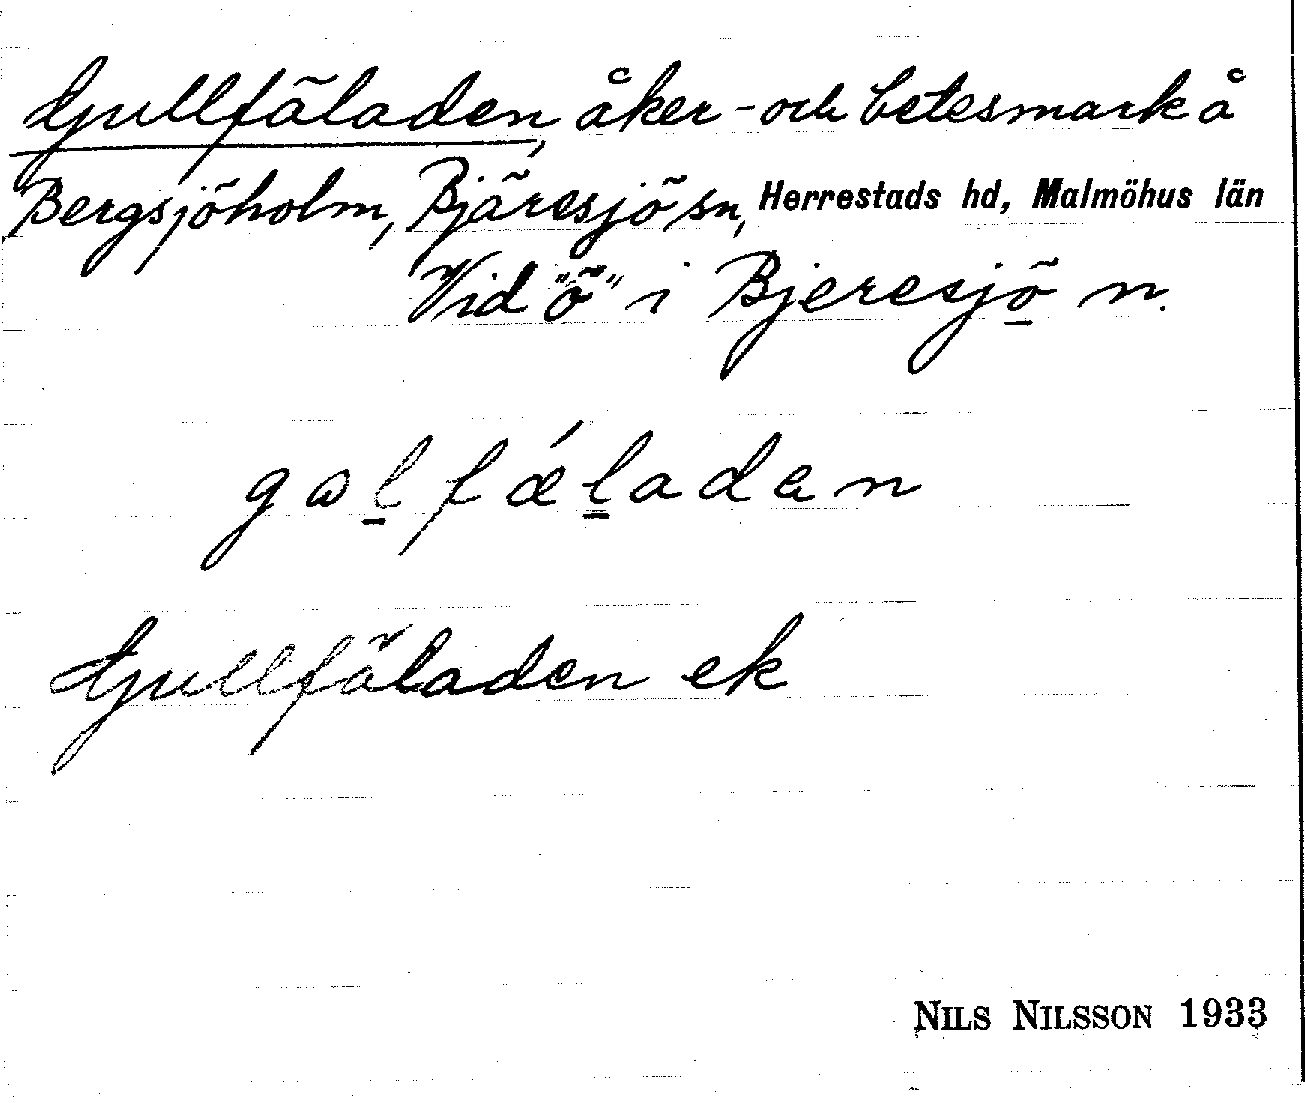 Gullfäladen, åker- och betesmark å
Bergsjöholm, Bjäresjö sn, Herrestads hd, Malmöhus län
Vid "ö" i Bjeresjö n.
galfǽladan
Gullfäladen ek
NILS NILSSON 1933